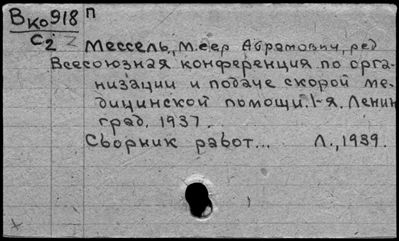 Вко918 П
С2
Мессель, Меер Абрамович, ред
Всесоюзная конференция по орга-
низации и подаче скорой ме-
дицинской помощи. 1-я. Ленин
град. 1937.
Сборник работ... Л., 1939.